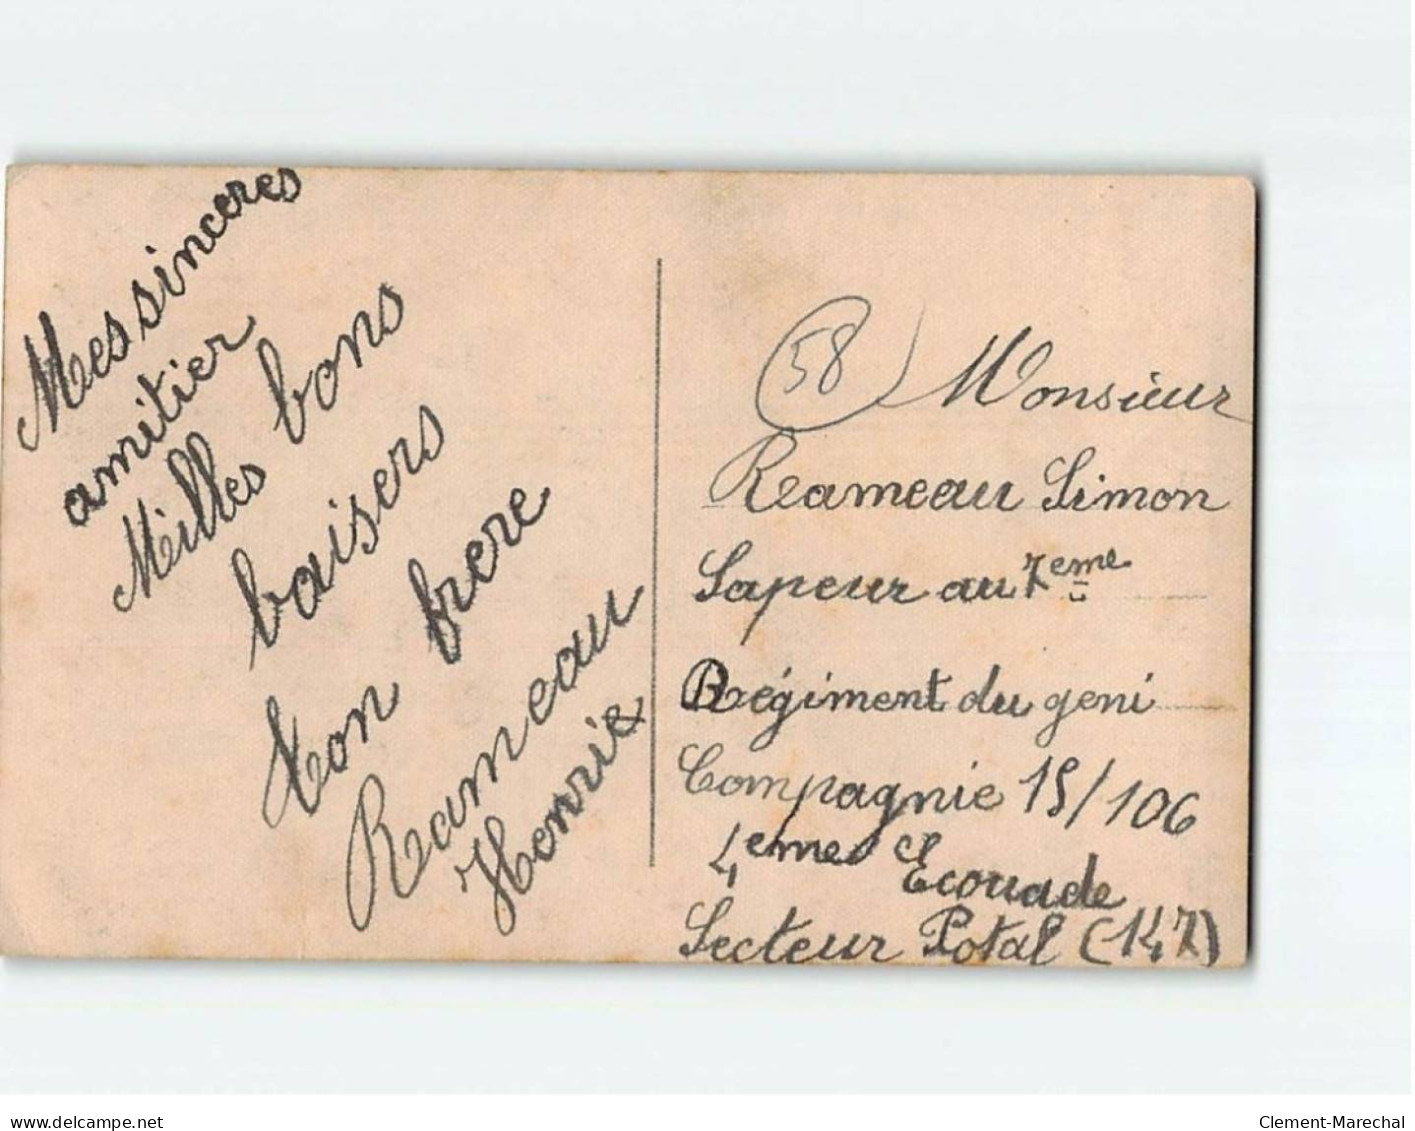 Mes sinceres
amitier
Milles bons
baisers
ton frere
Rameau
Henri
58
Monsieur
Rameau Simon
Sapeur au 7eme
Régiment du geni
Compagnie 15/106
4emes Ecouade
Secteur Potal (147)
delcampe.net
Clement-Marechal